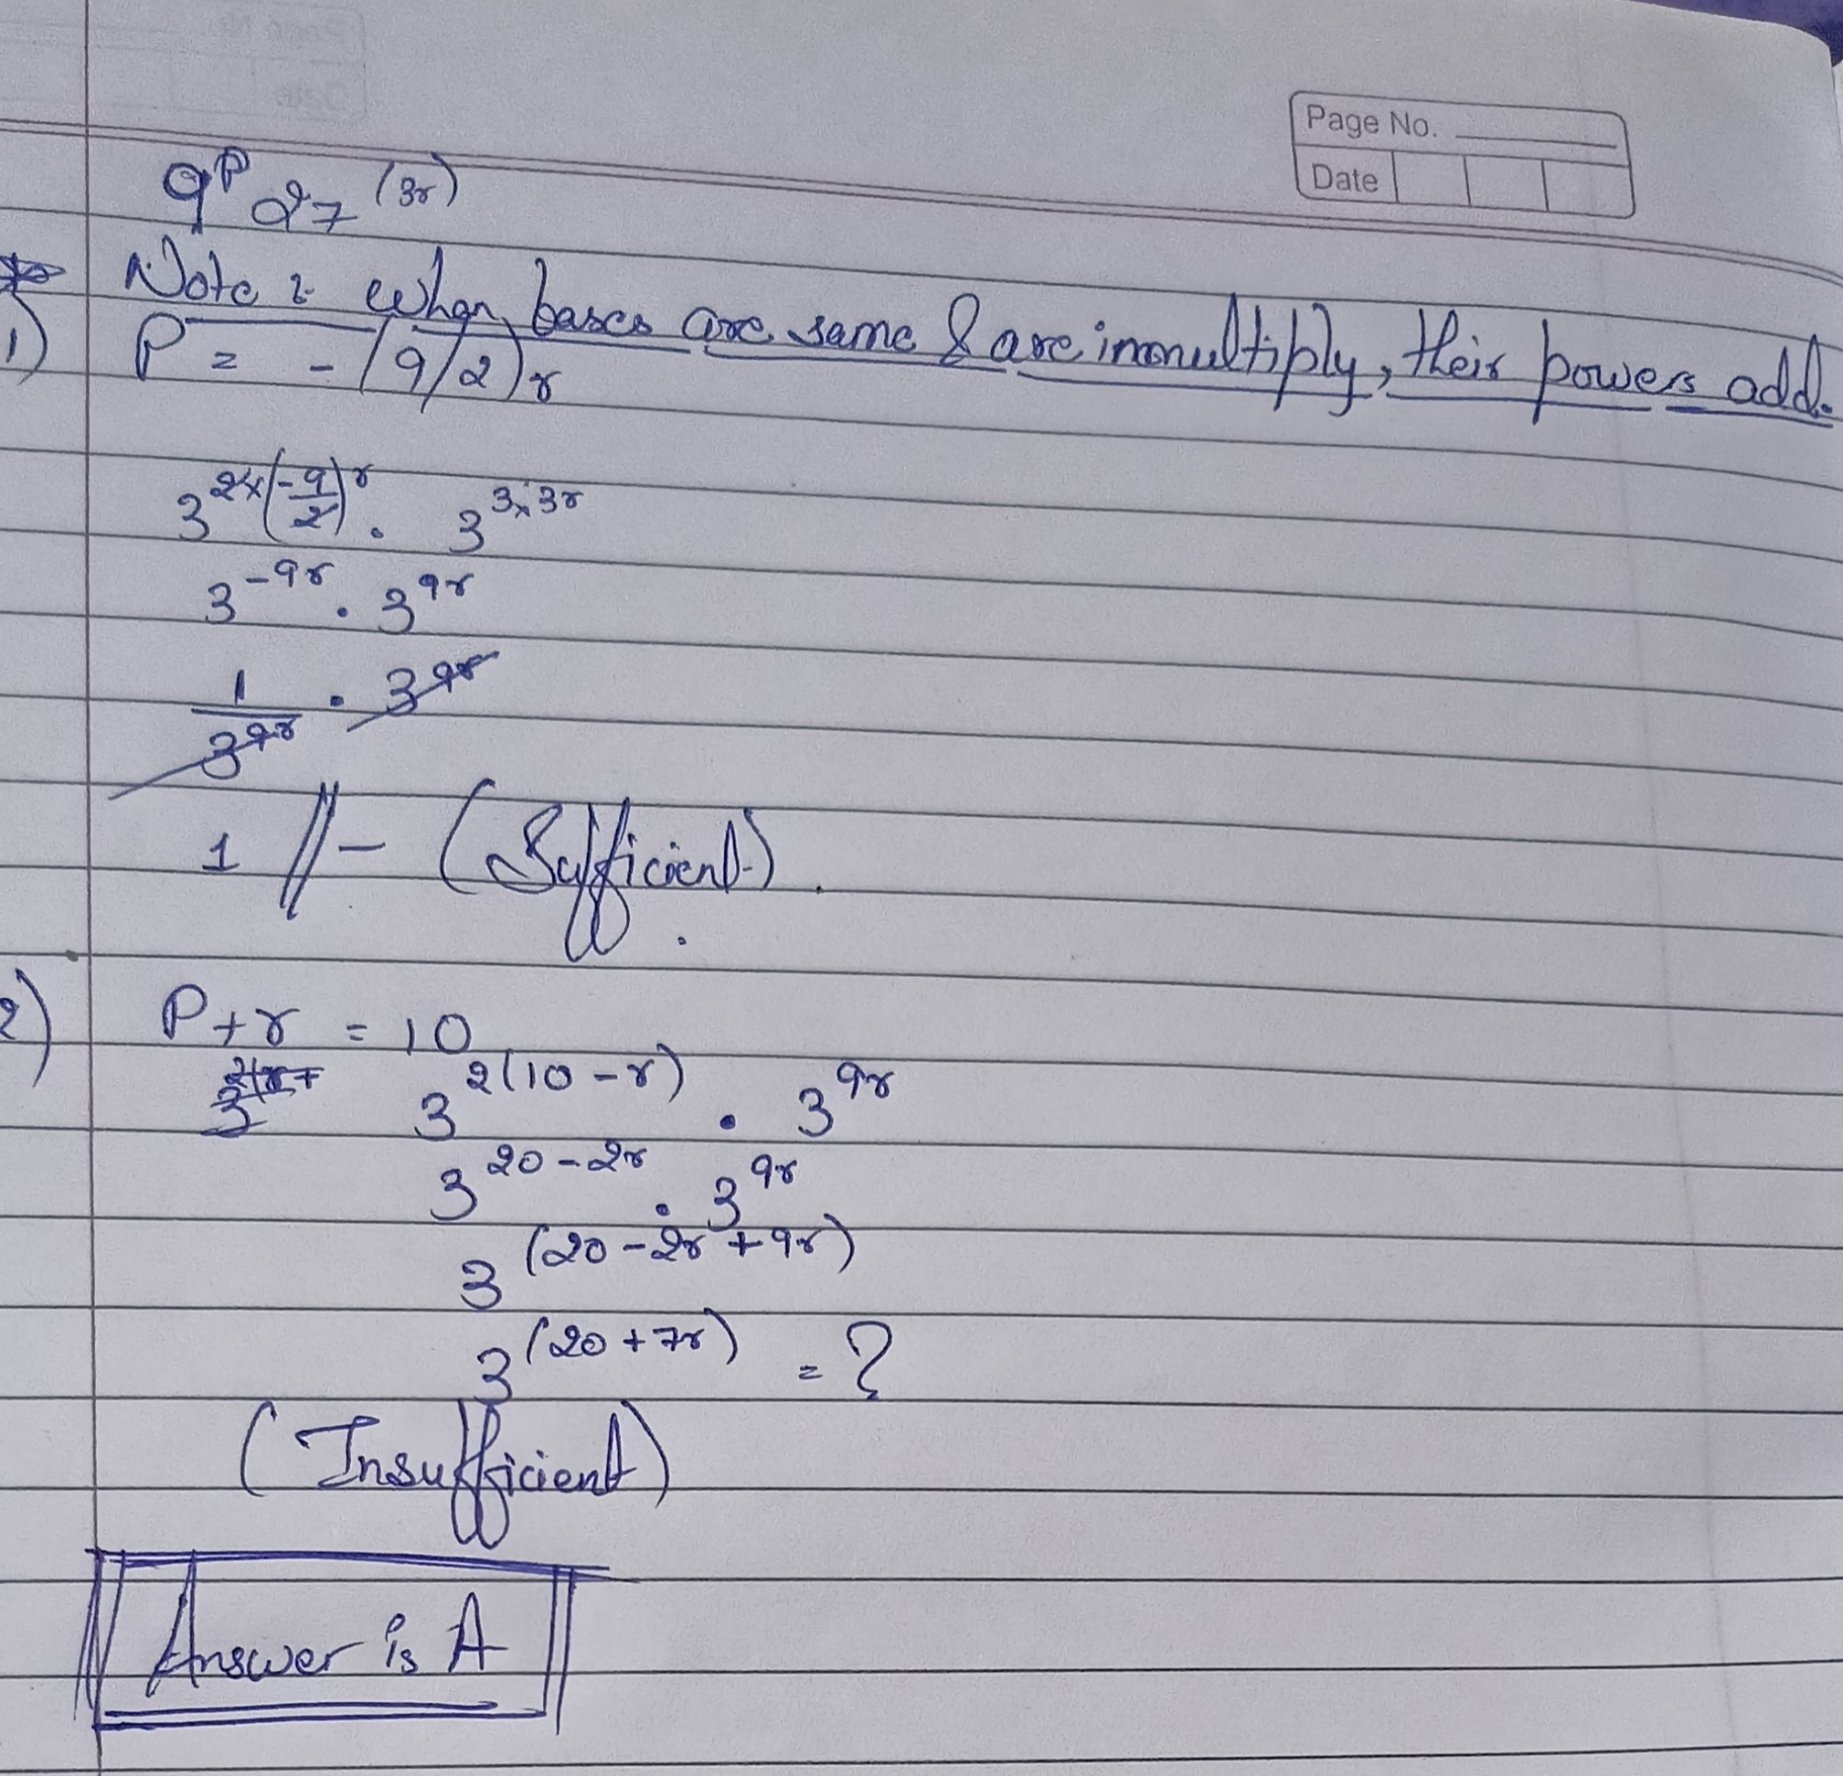 Page No.
Date
9^P 27^(3r)
Note :- When bases are same & are in multiply, their powers add.
1) P = -(9/2)r
3^2x(-9/2)r . 3^3x3r
3^-9r . 3^9r
1/3^9r . 3^9r
1 // - (Sufficient).
2) P+r = 10
3^2(10-r) . 3^9r
3^20-2r . 3^9r
3^(20-2r+9r)
3^(20+7r) = ?
(Insufficient)
Answer is A